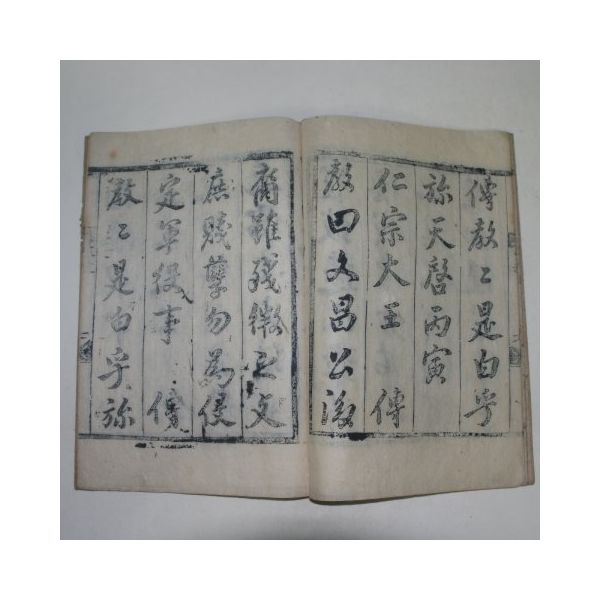 傳教〻是白乎
旀天啓丙寅
仁宗大王 傳
教曰文昌公後
裔雖殘微之文
庶賤孽勿為侵
定軍役事 傳
教〻是白乎旀